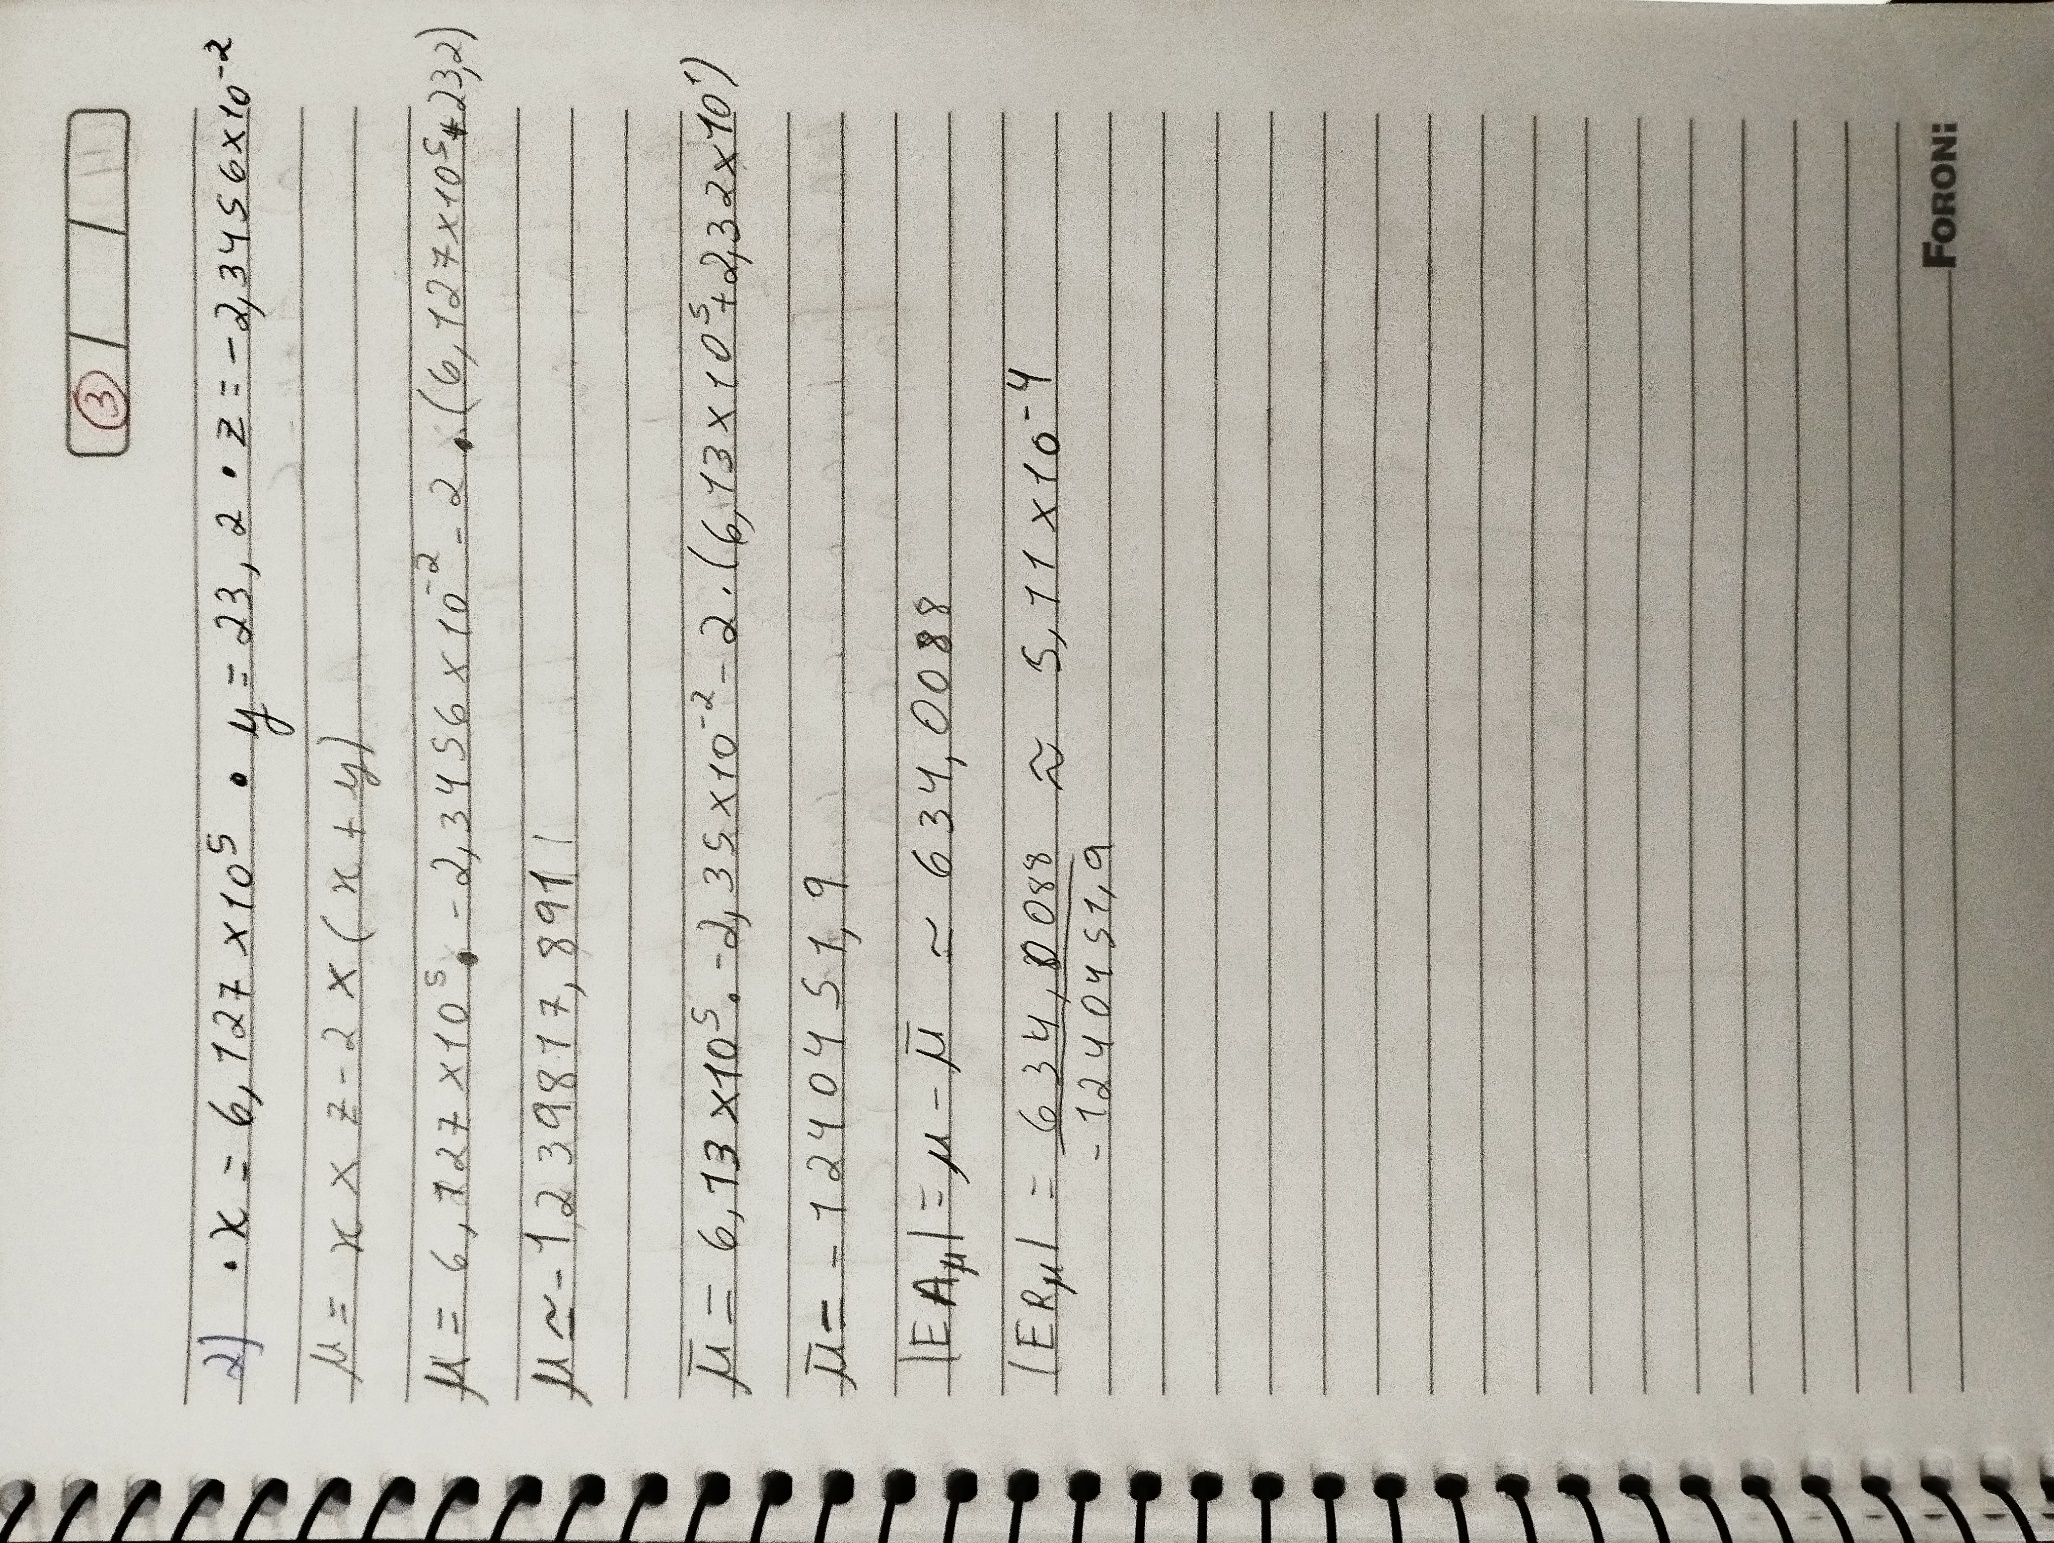 3
2) • x = 6,127 x 10⁵ • y = 23,2 • z = -2,3456 x 10⁻²
μ = x x z - 2 x (x + y)
μ = 6,127 x 10⁵ . -2,3456 x 10⁻² - 2 . (6,127 x 10⁵ + 23,2)
μ ≃ -1239817,891
μ̄ = 6,13 x 10⁵ . -2,35 x 10⁻² - 2 . (6,13 x 10⁵ + 2,32 x 10¹)
μ̄ = -1240451,9
|EAμ| = μ - μ̄ ~ 634,0088
|ERμ| = 634,0088 ≈ 5,11 x 10⁻⁴
-1240451,9
FORONI